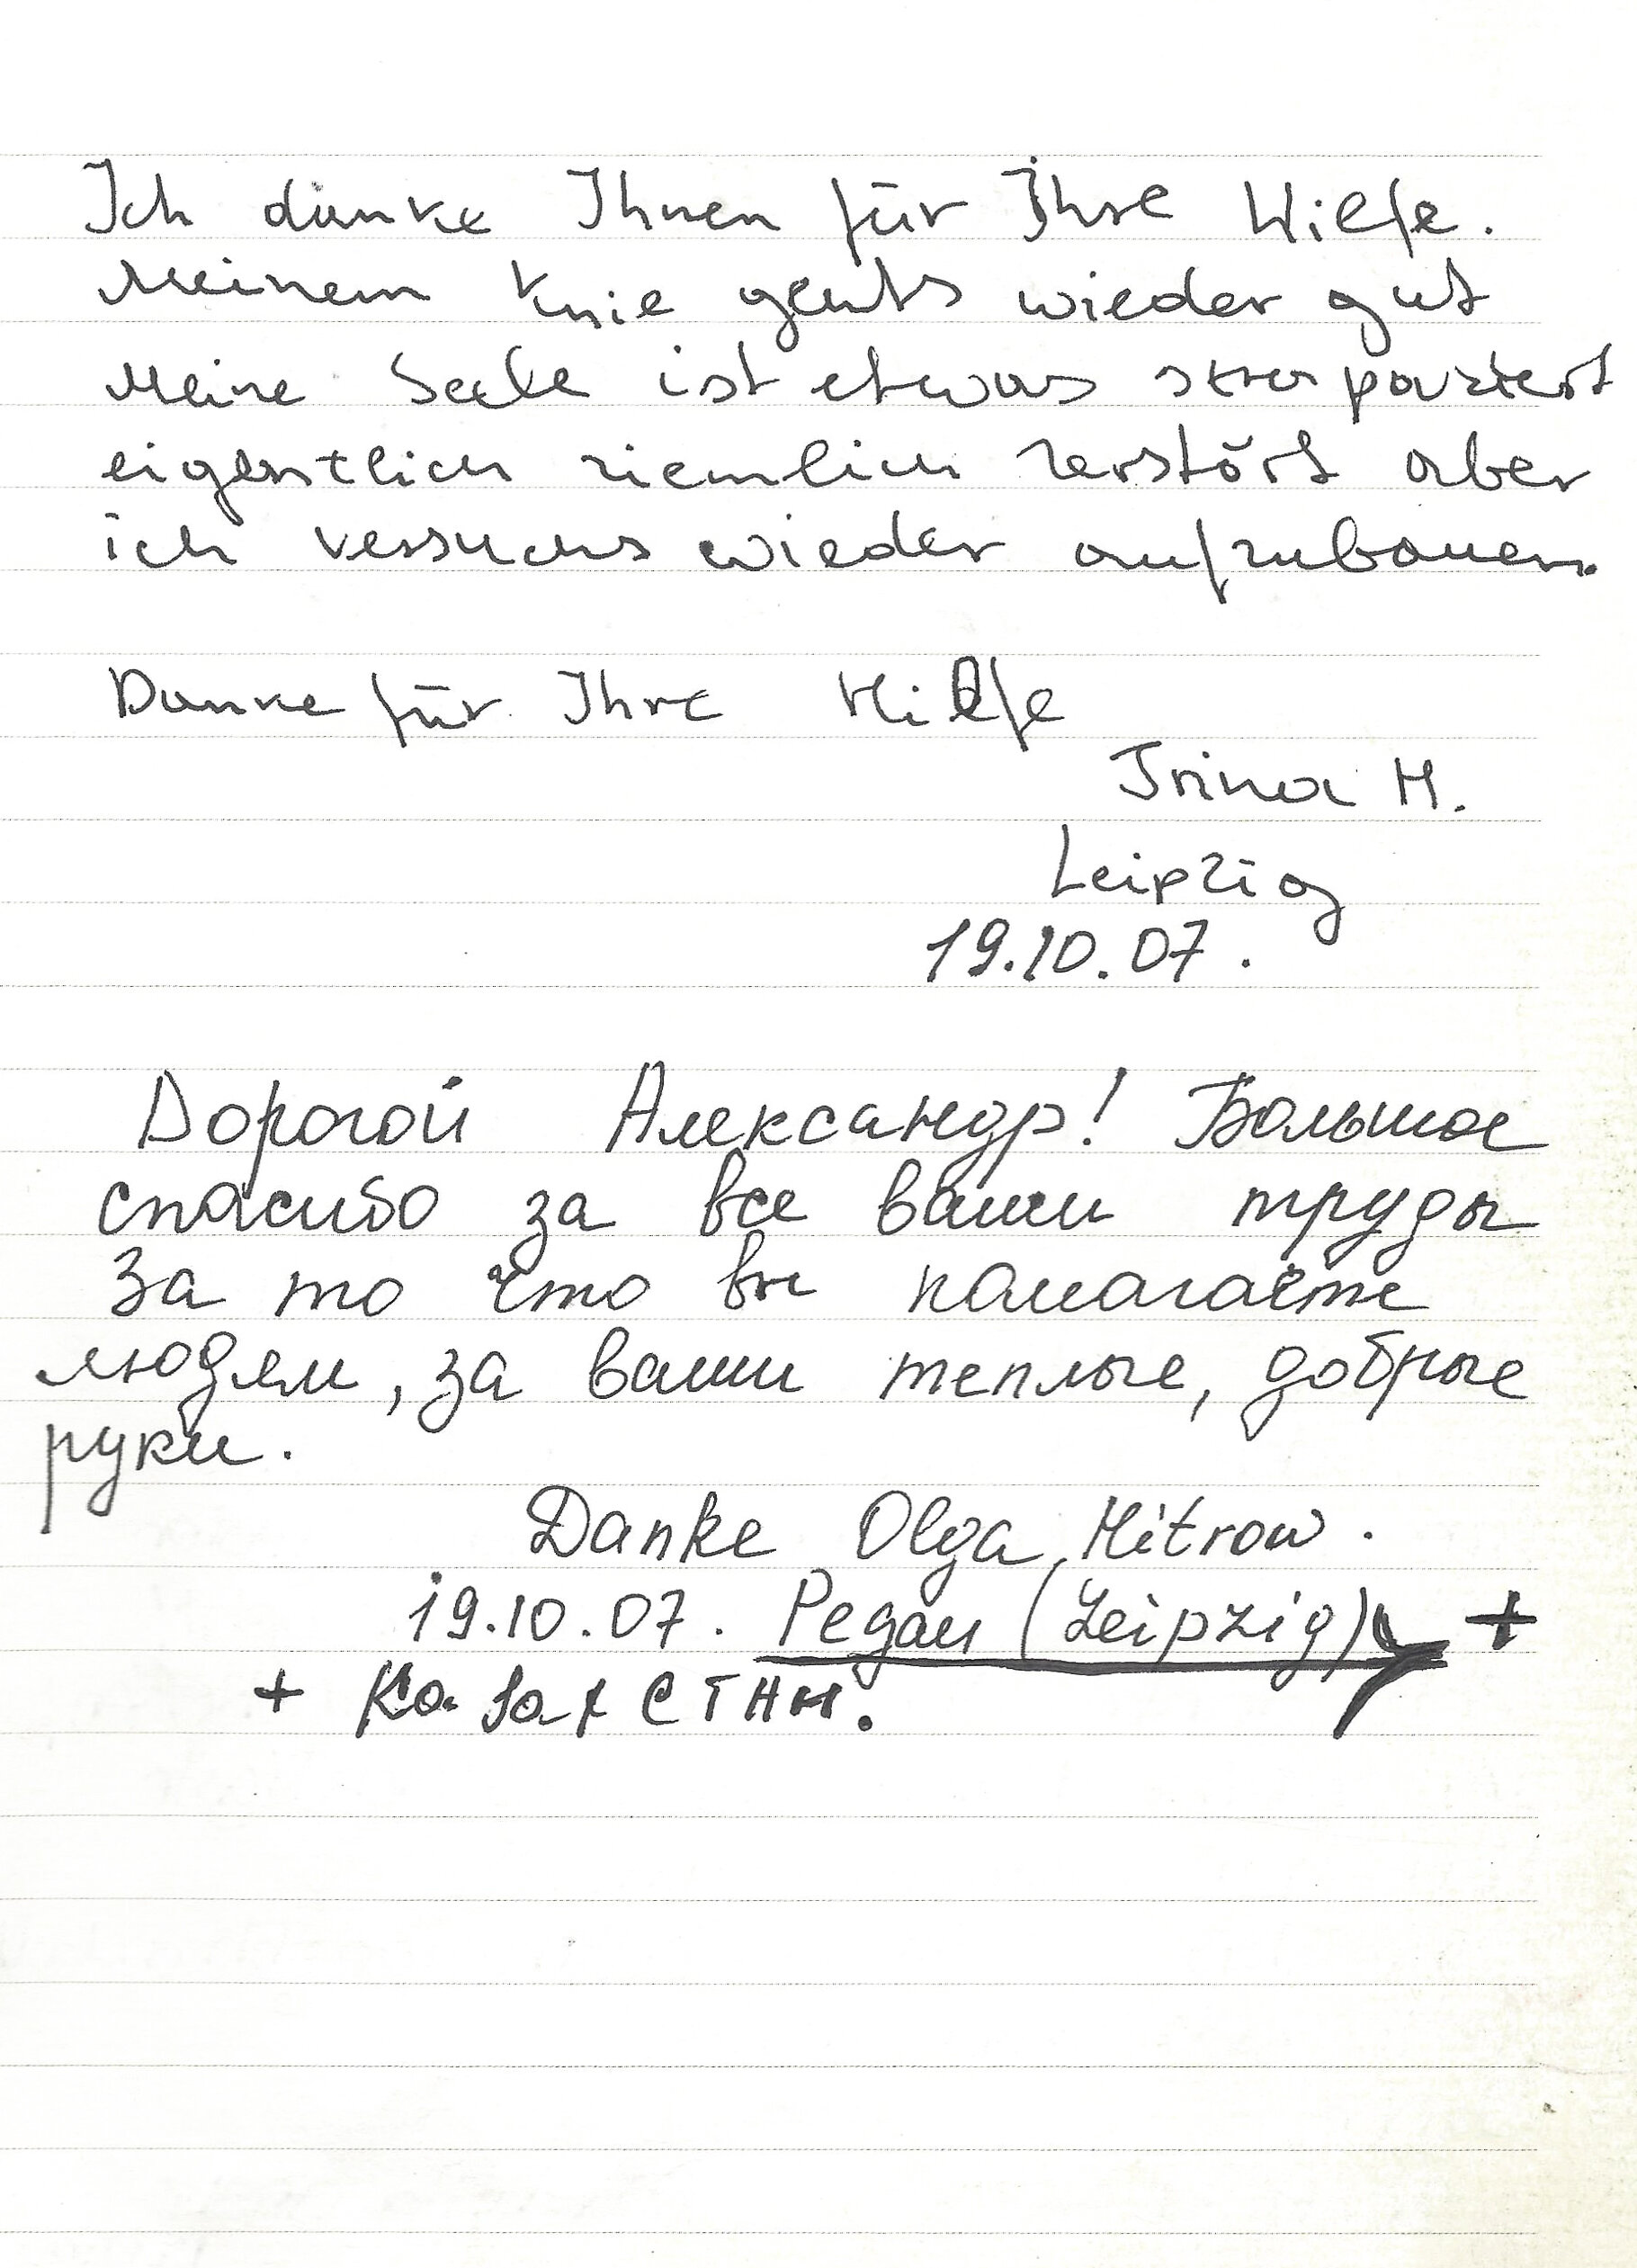 Ich danke Ihnen für Ihre Hilfe.
Meinem Knie gehts wieder gut
Meine Seele ist etwas strapaziert
eigentlich ziemlich zerstört aber
ich versuchs wieder aufzubauen.
Danke für Ihre Hilfe
Irina H.
Leipzig
19.10.07.
Дорогой Александр! Большое
спасибо за все ваши труды
За то что вы помагаете
людям, за ваши теплые, добрые
руки.
Danke Olga Mitrow.
19.10.07. Pegau (Leipzig) +
+ Казахстан.